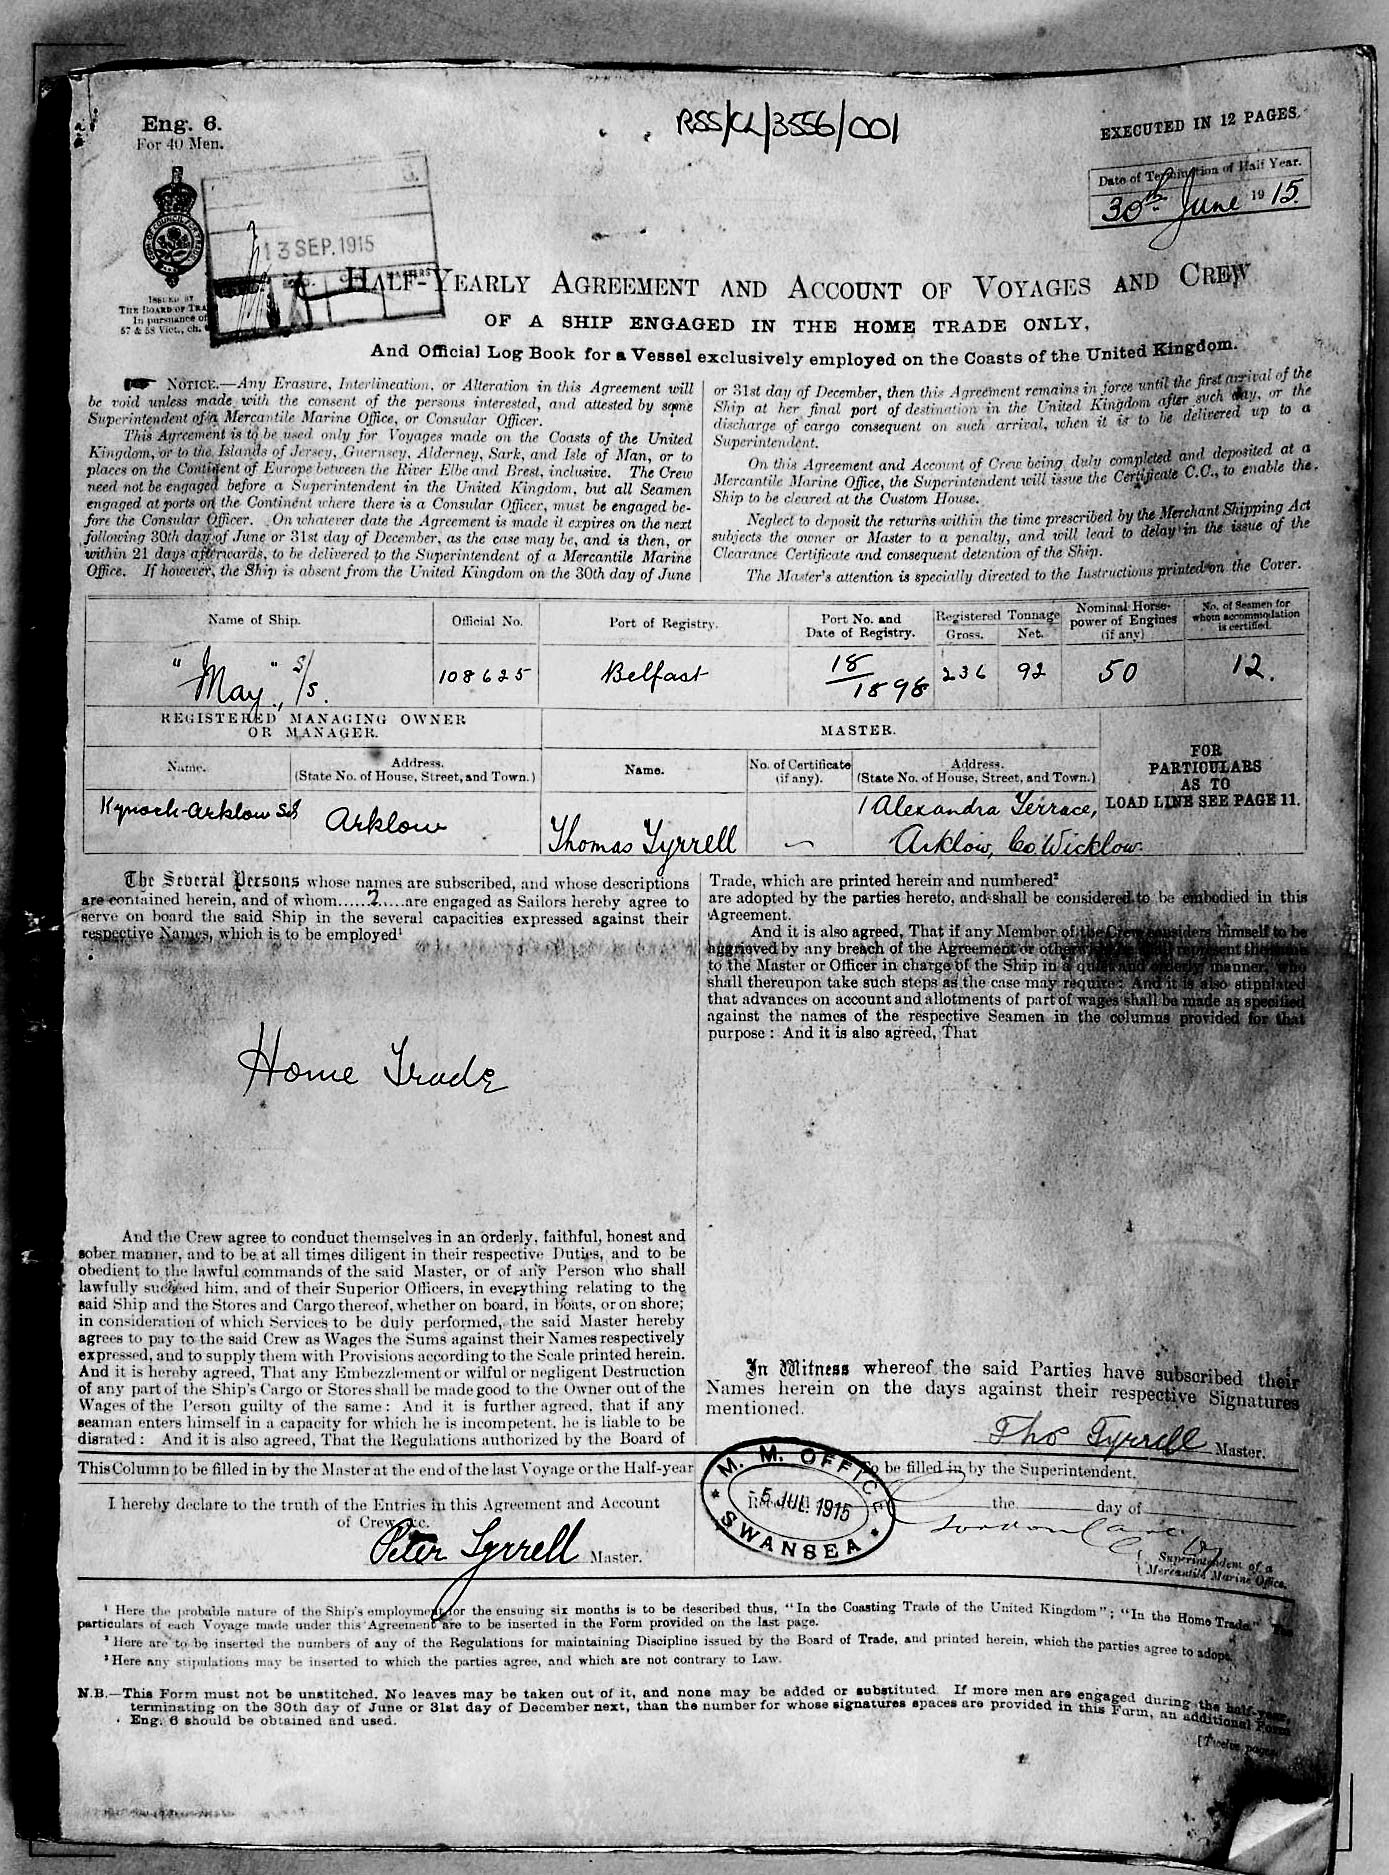 Eng. 6.
For 40 Men.
RSS/CL/3556/001
EXECUTED IN 12 PAGES.
Date of Termination of Half Year.
30th June 1915.
13 SEP. 1915
ISSUED BY
THE BOARD OF TRA
In pursuance of
57 & 58 Vict., ch.
HALF-YEARLY AGREEMENT AND ACCOUNT OF VOYAGES AND CREW
OF A SHIP ENGAGED IN THE HOME TRADE ONLY,
And Official Log Book for a Vessel exclusively employed on the Coasts of the United Kingdom.
NOTICE.—Any Erasure, Interlineation, or Alteration in this Agreement will
be void unless made with the consent of the persons interested, and attested by some
Superintendent of a Mercantile Marine Office, or Consular Officer.
This Agreement is to be used only for Voyages made on the Coasts of the United
Kingdom, or to the Islands of Jersey, Guernsey, Alderney, Sark, and Isle of Man, or to
places on the Continent of Europe between the River Elbe and Brest, inclusive. The Crew
need not be engaged before a Superintendent in the United Kingdom, but all Seamen
engaged at ports on the Continent where there is a Consular Officer, must be engaged be-
fore the Consular Officer. On whatever date the Agreement is made it expires on the next
following 30th day of June or 31st day of December, as the case may be, and is then, or
within 21 days afterwards, to be delivered to the Superintendent of a Mercantile Marine
Office. If however, the Ship is absent from the United Kingdom on the 30th day of June
or 31st day of December, then this Agreement remains in force until the first arrival of the
Ship at her final port of destination in the United Kingdom after such day, or the
discharge of cargo consequent on such arrival, when it is to be delivered up to a
Superintendent.
On this Agreement and Account of Crew being duly completed and deposited at a
Mercantile Marine Office, the Superintendent will issue the Certificate C.C., to enable the
Ship to be cleared at the Custom House.
Neglect to deposit the returns within the time prescribed by the Merchant Shipping Act
subjects the owner or Master to a penalty, and will lead to delay in the issue of the
Clearance Certificate and consequent detention of the Ship.
The Master's attention is specially directed to the Instructions printed on the Cover.
Name of Ship. Official No. Port of Registry. Port No. and Date of Registry. Registered Tonnage Gross. Net. Nominal Horse-power of Engines (if any) No. of Seamen for whom accommodation is certified.
"May" s/s. 108625 Belfast 18/1898 236 92 50 12.
REGISTERED MANAGING OWNER
OR MANAGER.
MASTER.
Name. Address. (State No. of House, Street, and Town.) Name. No. of Certificate (if any). Address. (State No. of House, Street, and Town.)
FOR
PARTICULARS
AS TO
LOAD LINE SEE PAGE 11.
Kynoch-Arklow Ltd Arklow Thomas Tyrrell — 1 Alexandra Terrace,
Arklow, Co. Wicklow.
The Several Persons whose names are subscribed, and whose descriptions
are contained herein, and of whom......2.....are engaged as Sailors hereby agree to
serve on board the said Ship in the several capacities expressed against their
respective Names, which is to be employed¹
Home Trade
And the Crew agree to conduct themselves in an orderly, faithful, honest and
sober manner, and to be at all times diligent in their respective Duties, and to be
obedient to the lawful commands of the said Master, or of any Person who shall
lawfully succeed him, and of their Superior Officers, in everything relating to the
said Ship and the Stores and Cargo thereof, whether on board, in boats, or on shore;
in consideration of which Services to be duly performed, the said Master hereby
agrees to pay to the said Crew as Wages the Sums against their Names respectively
expressed, and to supply them with Provisions according to the Scale printed herein.
And it is hereby agreed, That any Embezzlement or wilful or negligent Destruction
of any part of the Ship's Cargo or Stores shall be made good to the Owner out of the
Wages of the Person guilty of the same: And it is further agreed, that if any
seaman enters himself in a capacity for which he is incompetent, he is liable to be
disrated: And it is also agreed, That the Regulations authorized by the Board of
Trade, which are printed herein and numbered²
are adopted by the parties hereto, and shall be considered to be embodied in this
Agreement.
And it is also agreed, That if any Member of the Crew considers himself to be
aggrieved by any breach of the Agreement or otherwise he shall represent the same
to the Master or Officer in charge of the Ship in a quiet and orderly manner, who
shall thereupon take such steps as the case may require: And it is also stipulated
that advances on account and allotments of part of wages shall be made as specified
against the names of the respective Seamen in the columns provided for that
purpose: And it is also agreed, That
In Witness whereof the said Parties have subscribed their
Names herein on the days against their respective Signatures
mentioned.
Tho Tyrrell Master.
This Column to be filled in by the Master at the end of the last Voyage or the Half-year
I hereby declare to the truth of the Entries in this Agreement and Account
of Crew, &c.
Peter Tyrrell Master.
M. M. OFFICE
5 JUL. 1915
SWANSEA
To be filled in by the Superintendent.
the day of
Superintendent of a
Mercantile Marine Office.
¹ Here the probable nature of the Ship's employment for the ensuing six months is to be described thus, "In the Coasting Trade of the United Kingdom"; "In the Home Trade." The
particulars of each Voyage made under this Agreement are to be inserted in the Form provided on the last page.
² Here are to be inserted the numbers of any of the Regulations for maintaining Discipline issued by the Board of Trade, and printed herein, which the parties agree to adopt.
³ Here any stipulations may be inserted to which the parties agree, and which are not contrary to Law.
N.B.—This Form must not be unstitched. No leaves may be taken out of it, and none may be added or substituted. If more men are engaged during the half-year,
terminating on the 30th day of June or 31st day of December next, than the number for whose signatures spaces are provided in this Form, an additional Form
Eng. 6 should be obtained and used.
[Twelve pages.